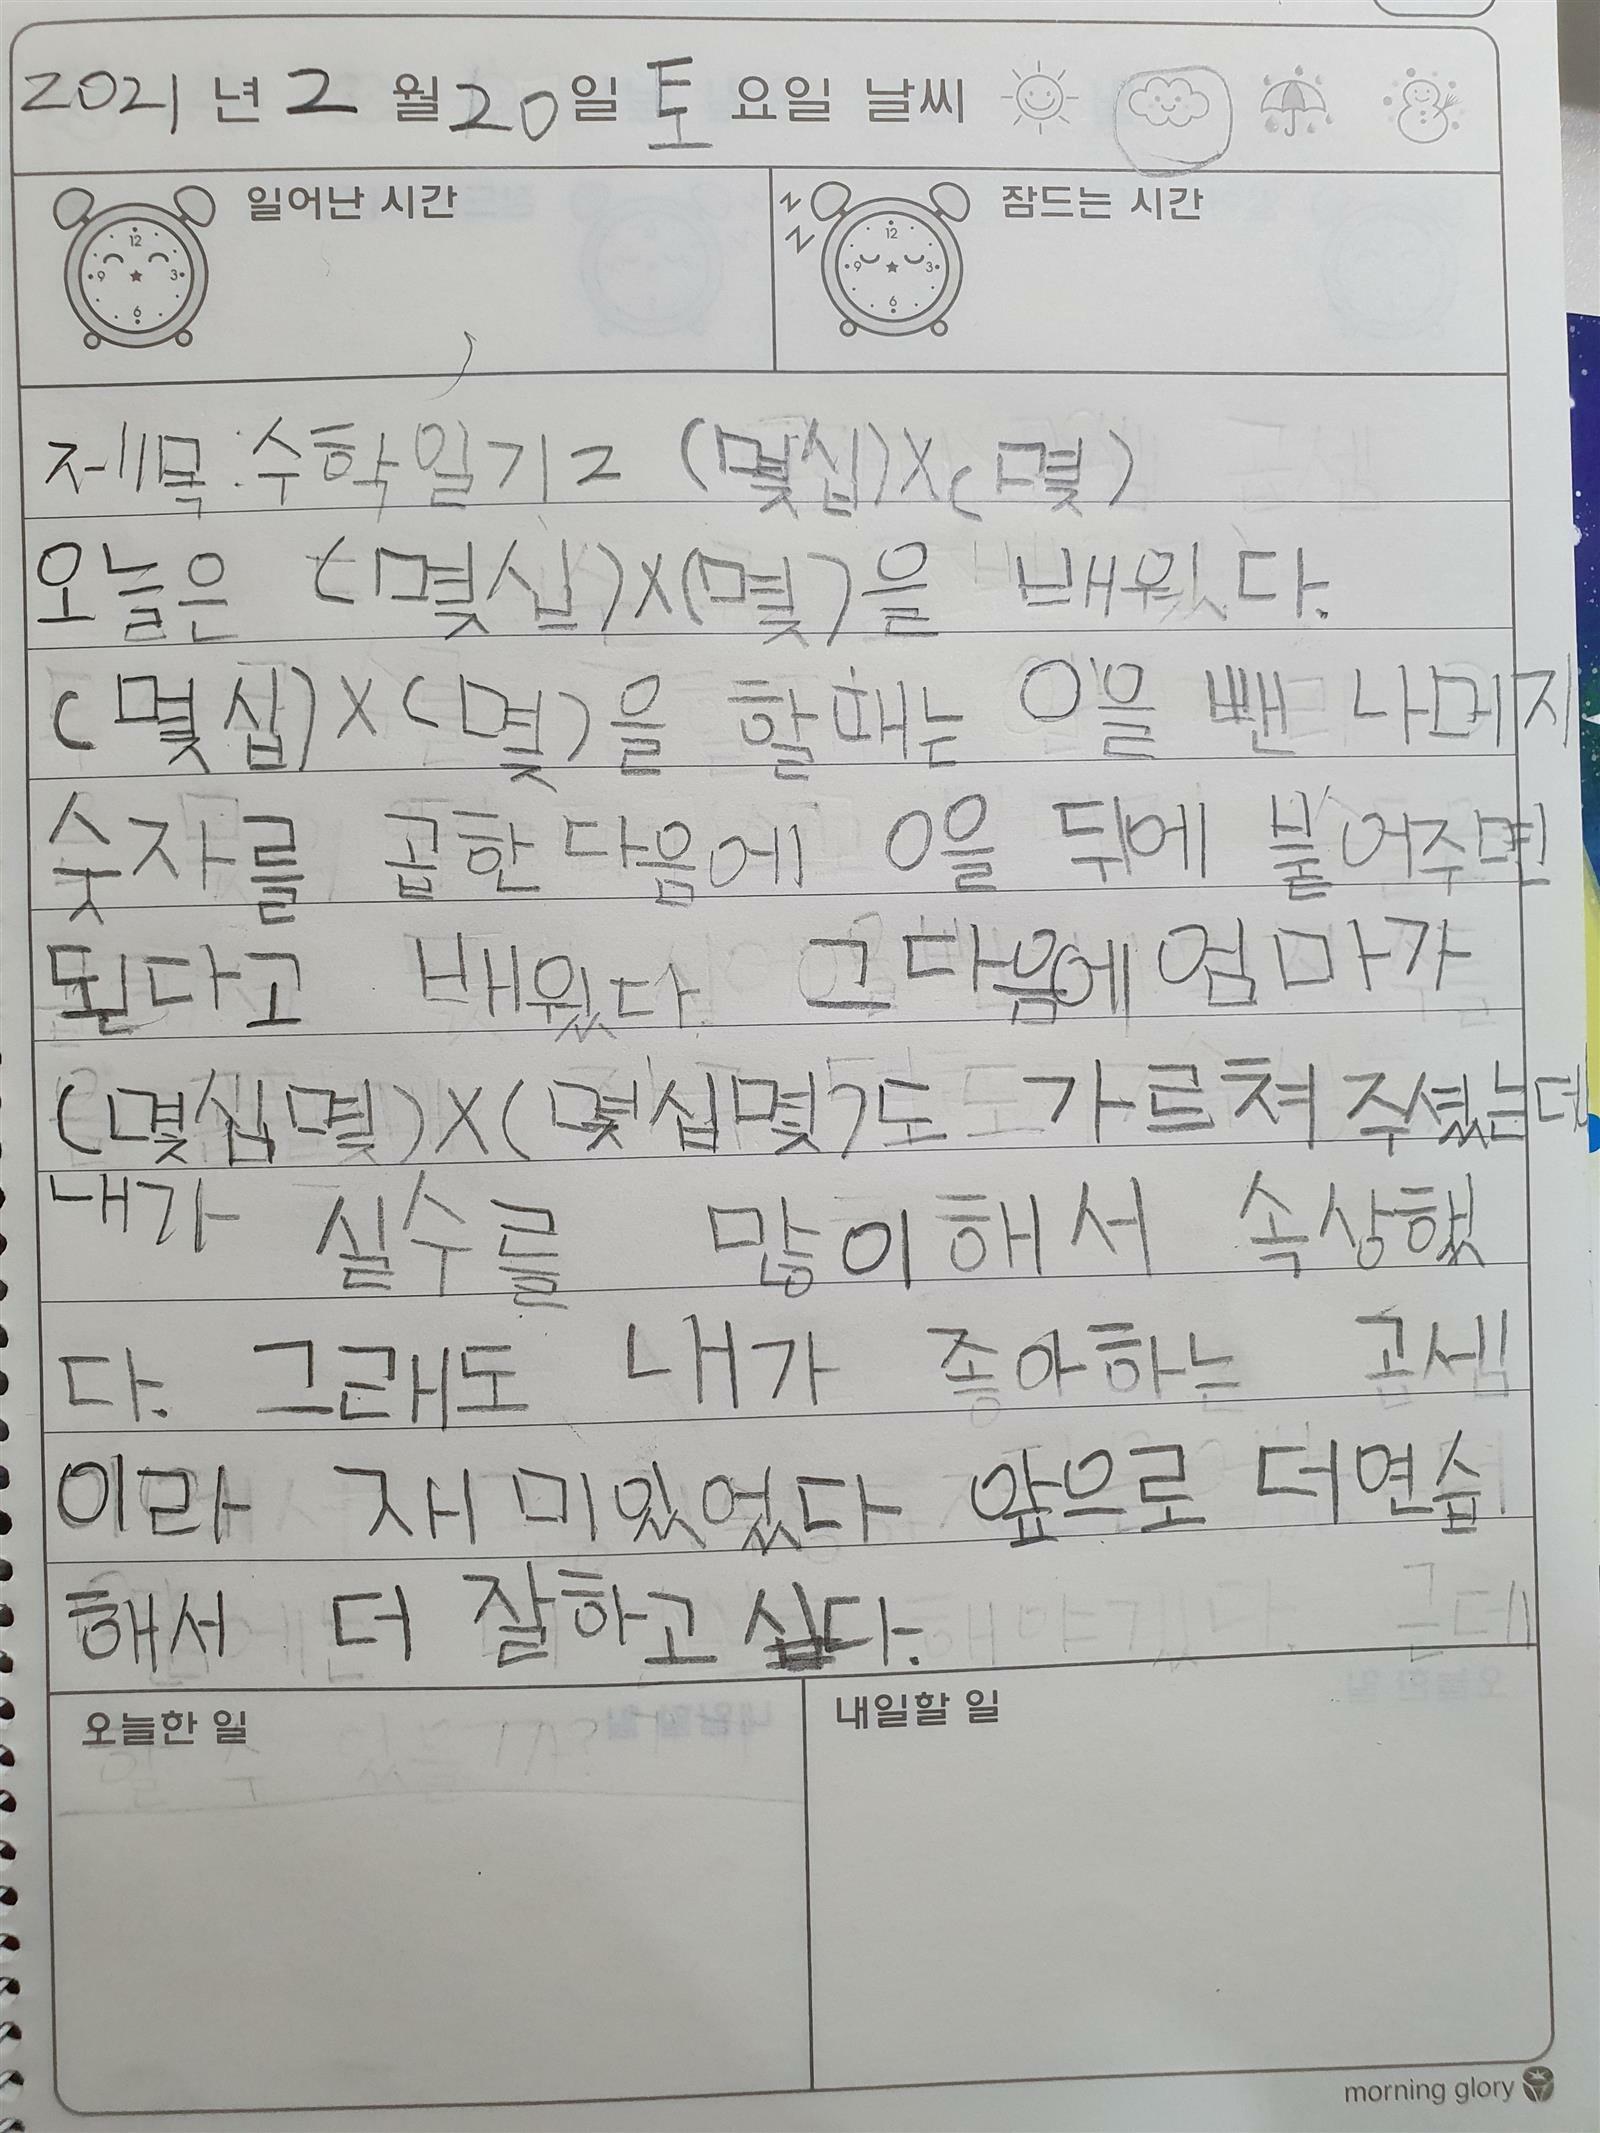 2021 년 2 월 20 일 토 요일 날씨
일어난 시간 잠드는 시간
제목 : 수학일기2 (몇십)X(몇)
오늘은 (몇십)X(몇)을 배웠다.
(몇십)X(몇)을 할때는 0을 뺀 나머지
숫자를 곱한다음에 0을 뒤에 붙어주면
된다고 배웠다. 그다음에 엄마가
(몇십몇)X(몇십몇)도 가르쳐주셨는데
내가 실수를 많이해서 속상했
다. 그래도 내가 좋아하는 곱셈
이라 재미있었다 앞으로 더연습
해서 더 잘하고싶다.
오늘한 일 내일할 일
morning glory